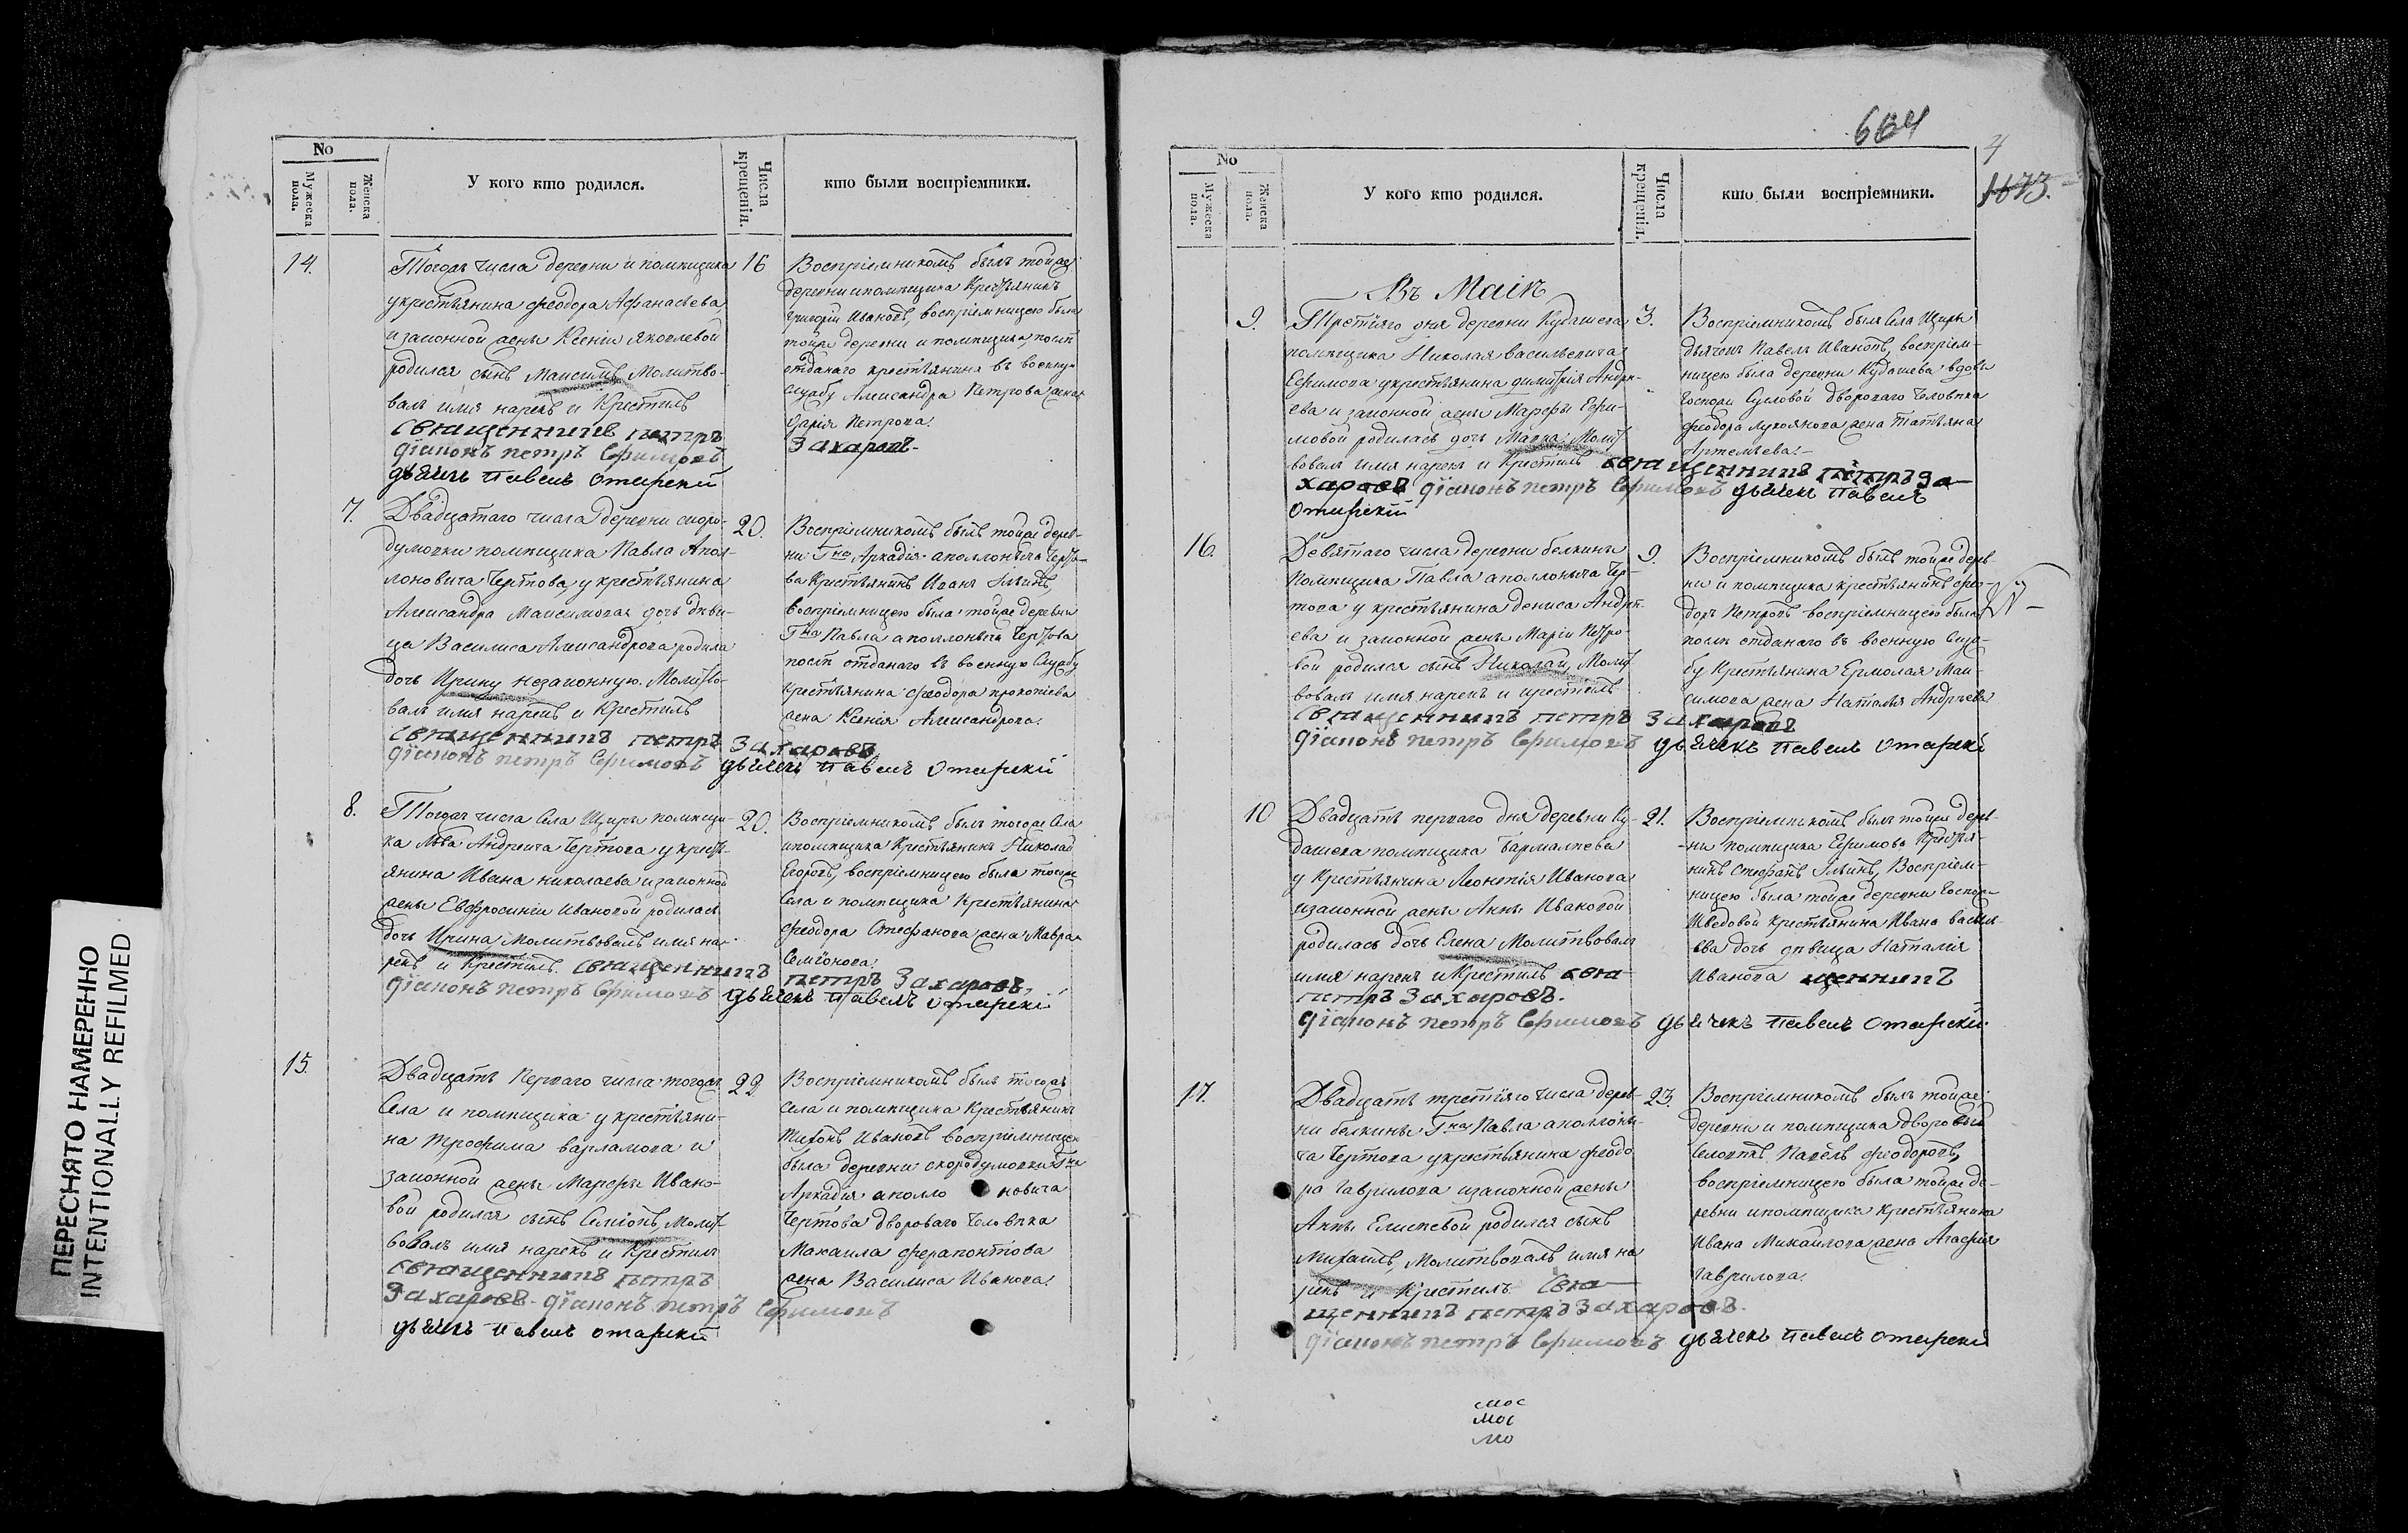 ПЕРЕСНЯТО НАМЕРЕННО
INTENTIONALLY REFILMED
No
Мужеска пола.
Женска пола.
У кого кто родился.
Числа крещенія.
кто были воспріемники.
14.
Тогожъ числа деревни и помѣщика
у крестьянина Феодора Афанасьева
и законной жены Ксеніи Яковлевой
родился сынъ Максимъ Молитво-
валъ имя нарекъ и Крестилъ
священникъ петръ
діаконъ петръ Ефимовъ
дьячекъ Павелъ
16
Воспріемникомъ былъ тойже
деревни и помѣщика Крестьянинъ
Григорій Ивановъ, воспріемницею была
тойже деревни и помѣщика, послѣ
отданаго крестьянина въ военную
службу Александра Петрова жена
Дарія Петрова.
Захаровъ
7.
Двадцатаго числа деревни скоро-
думовки помѣщика Павла Апол-
лоновича Чертова, у крестьянина
Александра Максимова дочь дѣви-
ца Василиса Александрова родила
дочь Ирину незаконную. Молитво-
валъ имя нарекъ и Крестилъ
священникъ петръ Захаровъ
діаконъ петръ Ефимовъ дьячекъ Павелъ
20.
Воспріемникомъ былъ тойже дерев-
ни Гна Аркадія Аполлоныча Черто-
ва Крестьянинъ Иванъ Ильинъ,
воспріемницею была тойже деревни
Гна Павла Аполлоныча Чертова
послѣ отданаго въ военную Службу
Крестьянина Феодора прокопіева
жена Ксенія Александрова.
8.
Тогожъ числа Села Щиры помѣщи-
ка Льва Андреича Чертова у кресть-
янина Ивана николаева и законной
жены Евфросиніи Ивановой родилась
дочь Ирина, Молитвовалъ имя на-
рекъ и Крестилъ. священникъ петръ Захаровъ,
діаконъ петръ Ефимовъ дьячекъ Павелъ
20.
Воспріемникомъ былъ тогоже Села
и помѣщика Крестьянинъ Николай
Егоровъ, воспріемницею была тогоже
Села и помѣщика Крестьянина
Феодора Стефанова жена Мавра
Семіонова.
15.
Двадцать Перваго числа тогожъ
Села и помѣщика у крестьяни-
на Трофима варламова и
законной жены Марфы Ивано-
вой родился сынъ Семіонъ, Молит-
вовалъ имя нарекъ и Крестилъ
священникъ петръ
Захаровъ діаконъ петръ Ефимовъ
дьячекъ Павелъ
22
Воспріемникомъ былъ тогожъ
Села и помѣщика Крестьянинъ
Тихонъ Ивановъ воспріемницею
была деревни скородумовки Гна
Аркадія аполлоновича
Чертова двороваго Человѣка
Михаила ферапонтова
жена Василиса Иванова.
664
4
1673.
No
Мужеска пола.
Женска пола.
У кого кто родился.
Числа крещенія.
кто были воспріемники.
Въ Маіѣ
9.
Третіяго дня деревни Кудашева
помѣщика Николая васильевича
Ефимова у крестьянина димитрія Андре-
ева и законной жены Марфы Ефи-
мовой родилась дочь Мавра, Молит-
вовалъ имя нарекъ и Крестилъ священникъ петръ За-
харовъ діаконъ петръ Ефимовъ дьячекъ Павелъ
3.
Воспріемникомъ былъ Села Щиры
дьячекъ Павелъ Ивановъ, воспріем-
ницею была деревни Кудашева вдова
Госпожи Сусловой двороваго Человѣка
феодора лукоянова жена Татьяна
Артемьева.
16.
Девятаго числа деревни белкины
Помѣщика Павла аполлоныча Чер-
това у крестьянина дениса Андре-
ева и законной жены Маріи Петро-
вой родился сынъ Николай, Молит-
вовалъ имя нарекъ и крестилъ
священникъ петръ Захаровъ
діаконъ петръ Ефимовъ дьячекъ Павелъ
9.
Воспріемникомъ былъ тойже дерев-
ни и помѣщика крестьянинъ фео-
доръ Петровъ воспріемницею была
послѣ отданаго въ военную Служ-
бу Крестьянина Ермолая Мак-
симова жена Наталья Андреева
10
Двадцать перваго дня деревни Ку-
дашева помѣщика
у Крестьянина Леонтія Иванова
и законной жены Анны Ивановой
родилась дочь Елена Молитвовалъ
имя нарекъ и Крестилъ свя-
петръ Захаровъ.
діаконъ петръ Ефимовъ дьячекъ Павелъ
21.
Воспріемникомъ былъ тойже дерев-
ни помѣщика Ефимова Крестья-
нинъ Стефанъ Ильинъ, Воспріем-
ницею была тойже деревни Госпожи
Шведовой Крестьянина Ивана василь-
ева дочь дѣвица Наталія
Иванова щенникъ
17.
Двадцать третіяго числа дерев-
ни белкины Гна Павла аполлоны-
ча Чертова у крестьянина феодо
ра Гаврилова и законной жены
Анны Елисеевой родился сынъ
Михаилъ, Молитвовалъ имя на
рекъ и Крестилъ свя-
щенникъ петръ Захаровъ.
діаконъ петръ Ефимовъ дьячекъ Павелъ
23.
Воспріемникомъ былъ тойже
деревни и помѣщика дворовый
Человѣкъ Павелъ Феодоровъ,
воспріемницею была тойже де-
ревни и помѣщика крестьянина
Ивана Михайлова жена Агафія
Гаврилова.
мос
мос
мо